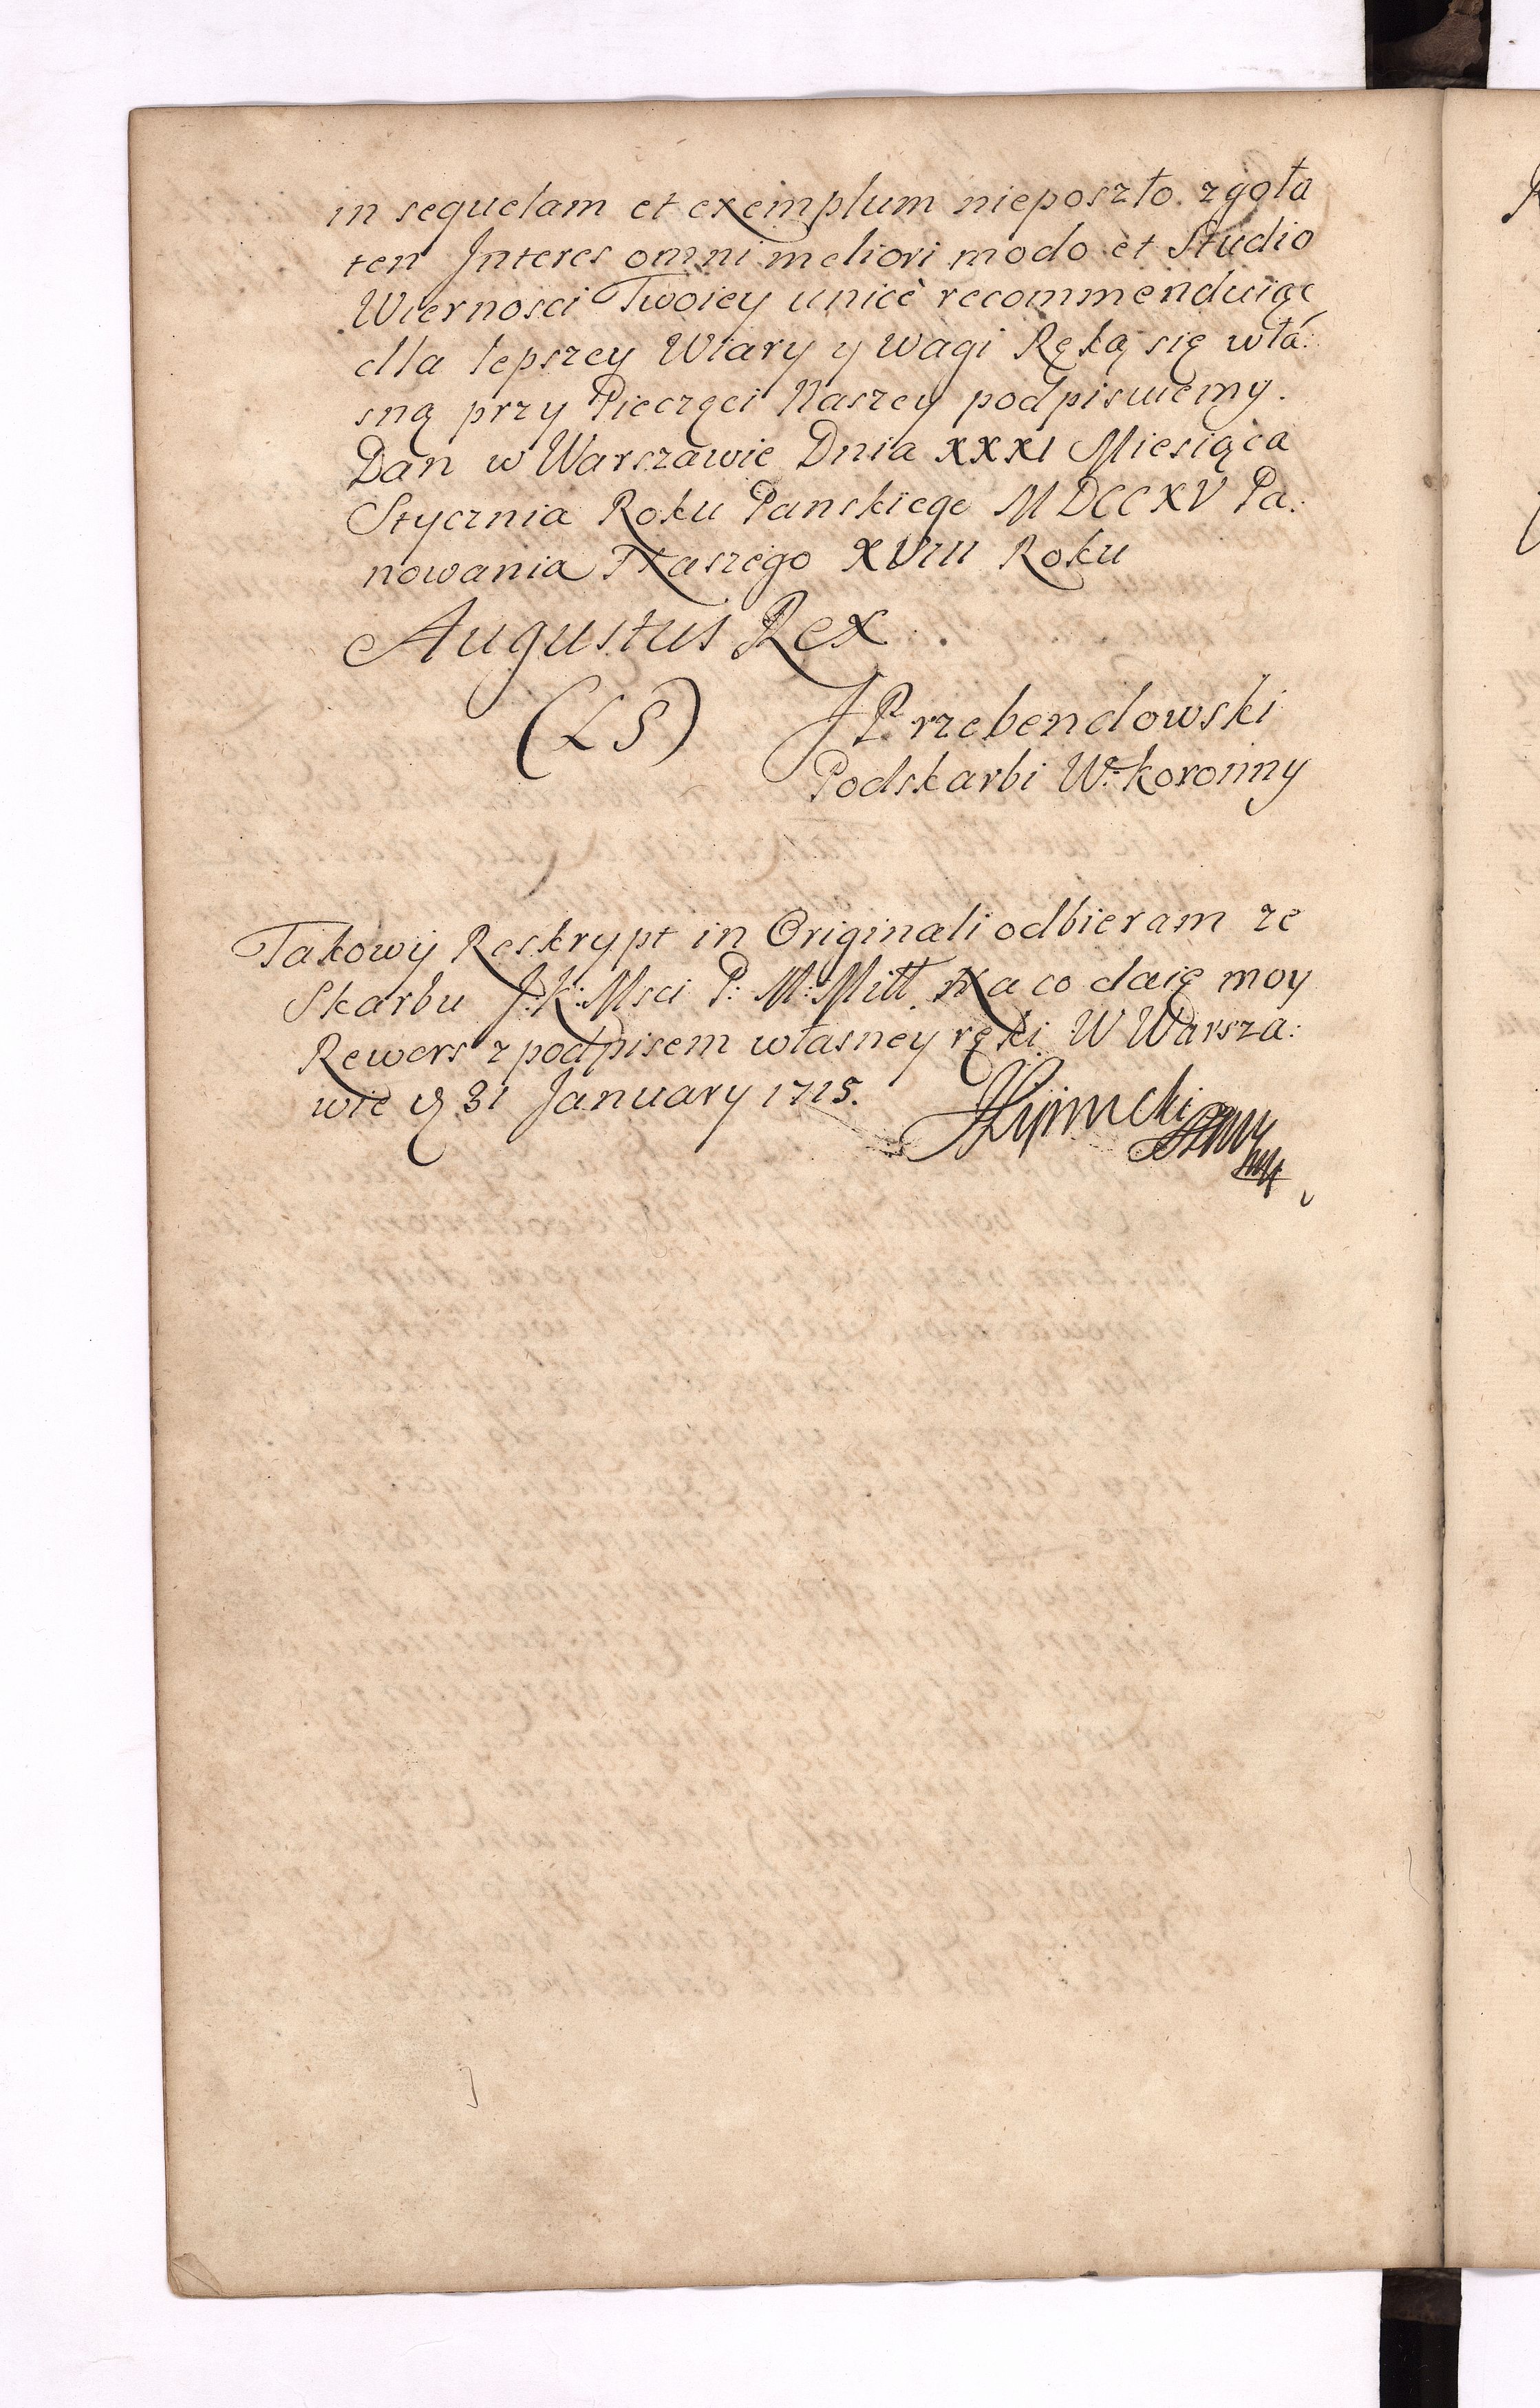 in sequelam et exemplum nieposzło. zgoła
ten Interes omni meliori modo et Studio
Wiernosci Twoiey unicè recommenduiąc
dla lepszey Wiary y wagi Ręką się wła:
sną przy Pieczęci Naszey podpisuiemy.
Dan w Warszawie Dnia XXXI Miesiąca
Stycznia Roku Panskiego MDCCXV Pa:
nowania Naszego XVIII Roku
Augustus Rex.
(LS) J Przebendowski
Podskarbi W. koronny
Takowÿ Reskrypt in Originali odbieram ze
Skarbu J:K:Msci P: M: Mill Na co daię moy
Rewers z podpisem własney ręki W Warsza:
wie d 31 January 1715.